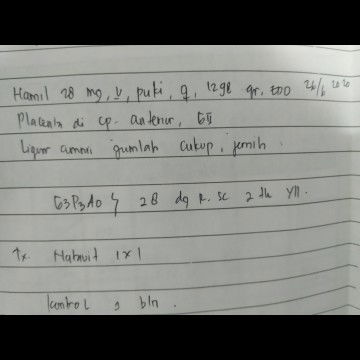 Hamil 28 mg, V, puki, ♀, 1298 gr, EDD 26/6 2020
Placenta di cp. anterior, GII
Liquor amnii jumlah cukup, jernih.
G3P3A0 28 dg R. SC 2 th YLL.
Tx. Natavit 1x1
kontrol 1 bln.